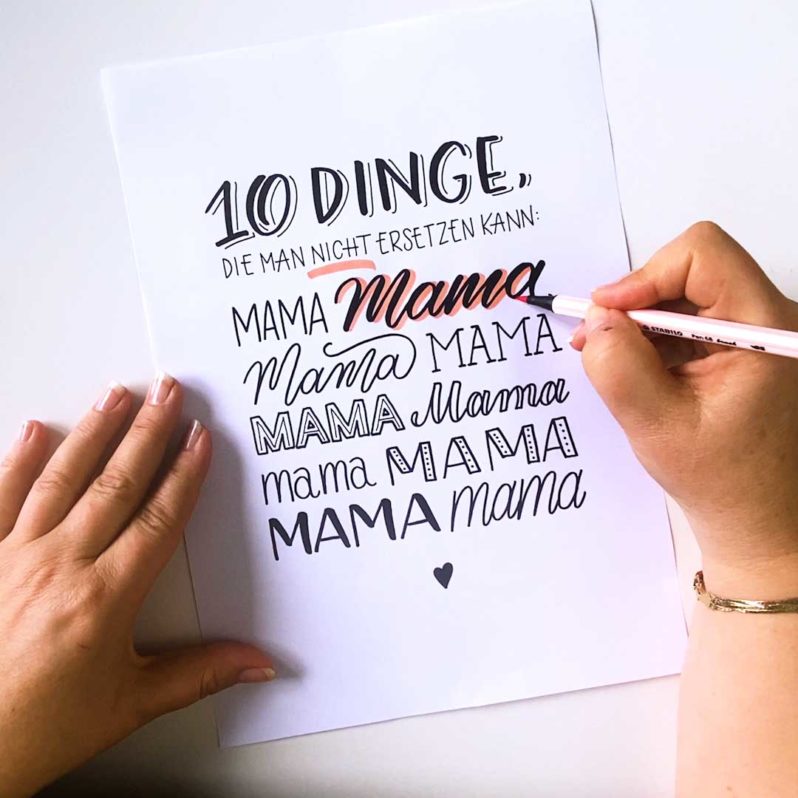 10 DINGE,
DIE MAN NICHT ERSETZEN KANN:
MAMA Mama
Mama MAMA
MAMA Mama
mama MAMA
MAMA mama
STABILO Pen 68 brush